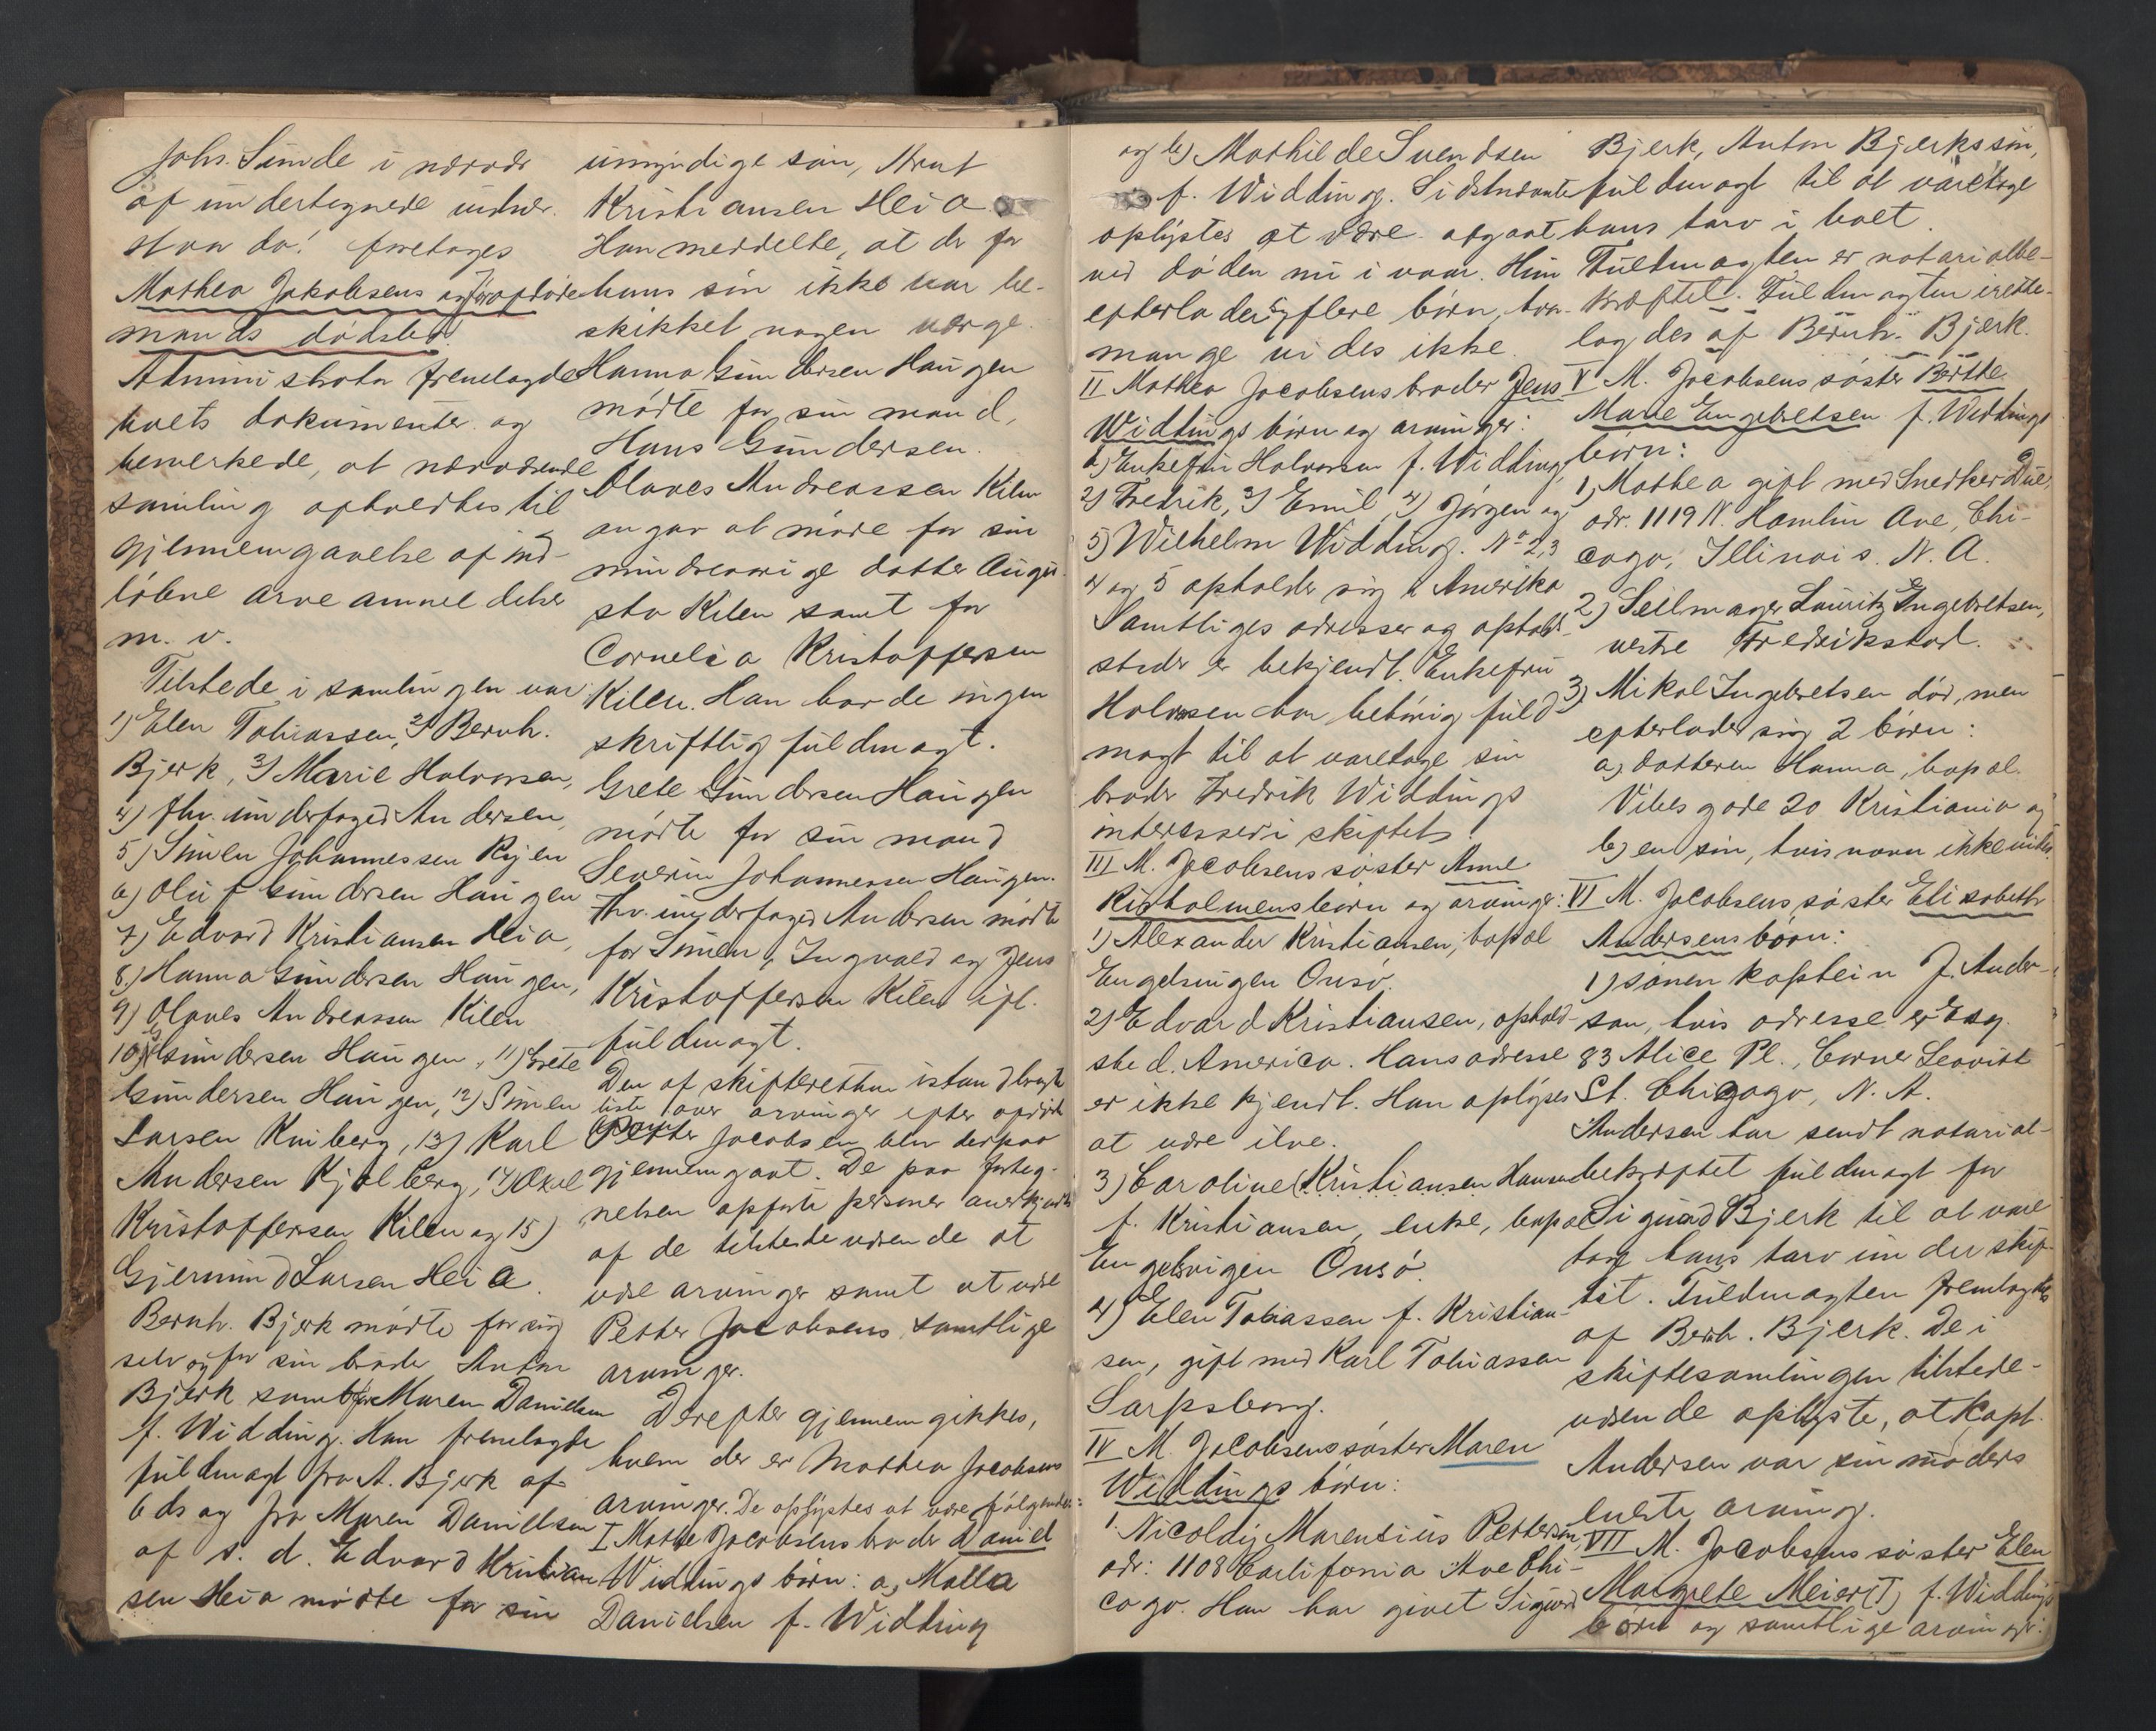 Johs. Sunde i nærvær
af undertegnede vidner.
Hvor da! foretages
Mathea Jakobsens og forafdøde
mands dødsbo
Administrator fremlagde
boets dokumenter og
bemerkede, at nærværende
samling afholdtes til
gjennemgaaelse af ind-
løbne arveanmeldelser
m. v.
Tilstede i samlingen var
1) Elen Tobiassen, 2) Bernh.
Bjerk, 3) Marie Halvorsen,
4) fhv. underfoged Andersen,
5) Simen Johannessen Kjen
6) Oluf Gundersen Haugen
7) Edvard Kristiansen Heia,
8) Hanna Gundersen Haugen,
9) Olaves Andreassen Kilen
10) Gundersen Haugen, 11) Grete
Gundersen Haugen, 12) Simen
Larsen Kniberg, 13) Karl
Andersen Kjølberg, 14) Axel
Kristoffersen Kilen og 15)
Gjermund Larsen Heia.
Bernh. Bjerk mødte for sig
selv og for sin broder Anton
Bjerk samt for Maren Danielsen
f. Widding. Han fremlagde
fuldmagt fra A. Bjerk af
6 ds og fra Maren Danielsen
af s. d. Edvard Kristian
sen Heia mødte for sin
umyndige søn, Knut
Kristiansen Heia.
Han meddelte, at der for
hans søn ikke var be-
skikket nogen værge.
Hanna Gundersen Haugen
mødte for sin mand,
Hans Gundersen.
Olaves Andreassen Kilen
angav at møde for sin
mindreaarige datter Augu-
sta Kilen samt for
Cornelia Kristoffersen
Kilen. Han havde ingen
skriftlig fuldmagt.
Grete Gundersen Haugen
mødte for sin mand
Severin Johannessen Haugen.
Fhv. underfoged Andersen mødte
for Simen, Ingvald og Jens
Kristoffersen Kilen ifl.
fuldmagt.
Den af skifteretten istandbragte
liste over arvinger efter afdøde
Petter Jacobsen blev derpaa
gjennemgaat. De paa forteg-
nelsen opførte personer anerkjendtes
af de tilstedeværende at
være arvinger samt at være
Petter Jacobsens samtlige
arvinger.
Derefter gjennemgikkes,
hvem der er Mathea Jacobsens
arvinger. De oplystes at være følgende:
I Mathea Jacobsens broder Daniel
Widdings børn: a, Malla
Danielsen f. Widding
og b) Mathilde Svendsen
f. Widding. Sidstnævnte
oplystes at være afgaat
ved døden nu i vaar. Hun
efterlader sig flere børn, hvor-
mange vides ikke.
II Mathea Jacobsens broder Jens
Widdings børn og arvinger:
1) Enkefru Halvorsen f. Widding,
2) Fredrik, 3) Emil, 4) Jørgen og
5) Wilhelm Widding. No 2, 3
4 og 5 opholder sig i Amerika
Samtliges adresser og opholds-
steder er bekjendt. Enkefru
Halvorsen har behørig fuld
magt til at varetage sin
broder Fredrik Widdings
interesser i skiftet.
III M. Jacobsens søster Anne
Kirkholmens børn og arvinger:
1) Alexander Kristiansen, bopæl
Engelsvigen Onsø.
2) Edvard Kristiansen, opholds-
sted. America. Hans adresse
er ikke kjendt. Han oplyses
at være ilive.
3) Caroline (Kristiansen Hansen
f. Kristiansen, enke, bopæl
Engelsvigen Onsø.
4) Elen Tobiassen f. Kristian-
sen, gift med Karl Tobiassen
Sarpsborg.
IV M. Jacobsens søster Maren
Widdings børn:
1. Nicolay Marentius Pettersen,
adr: 1108 California Ave Chi-
cago. Han har givet Sigurd
Bjerk, Anton Bjerks søn,
fuldmagt til at varetage
hans tarv i boet.
Fuldmagten er notarialbe-
kræftet. Fuldmagten irette-
lagdes af Bernh. Bjerk.
V M. Jacobsens søster Berthe
Marie Engebretsen f. Widdings
børn:
1, Mathea gift med Snedker Due,
adr. 1119 N. Hamlin Ave, Chi-
cago, Illinois. N. A.
2) Seilmager Lauritz Ingebretsen,
vestre Fredrikstad.
3) Mikal Ingebretsen død, men
efterlader sig 2 børn:
a, datteren Hanna, bopæl.
Vibesgade 20 Kristiania og
b) en søn, hvis navn ikke vides.
VI M. Jacobsens søster Elisabeth
Andersens børn:
1) sønen kaptein J. Ander-
sen, hvis adresse er Esq.
83 Alice Pl., Corner Leavitt
St. Chicago, N. A.
Andersen har sendt notarial-
bekræftet fuldmagt for
Sigurd Bjerk til at vare
tage hans tarv under skif-
tet. Fuldmagten fremlagdes
af Bernh. Bjerk. De i
skiftesamlingen tilstede-
værende oplyste, at kapt.
Andersen var sin moders
eneste arving.
VII M. Jacobsens søster Elen
Margrete Meier(s) f. Widdings
børn og samtlige arvinger: